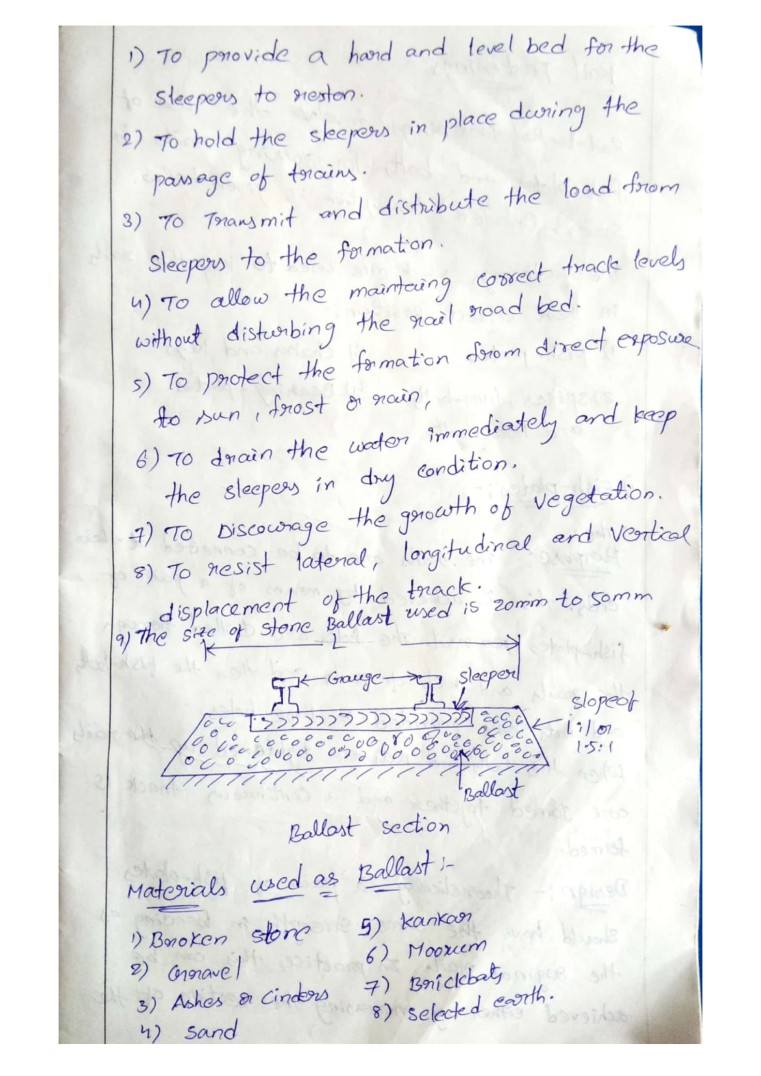 1) To provide a hard and level bed for the
sleepers to reston.
2) To hold the sleepers in place during the
passage of trains.
3) To Transmit and distribute the load from
Sleepers to the formation.
4) To allow the maintaing correct track levels
without disturbing the rail road bed.
5) To protect the formation from direct exposure
to sun, frost or rain,
6) To drain the water immediately and keep
the sleepers in dry condition.
7) To Discourage the growth of vegetation.
8) To resist lateral, longitudinal and vertical
displacement of the track.
9) The size of stone Ballast used is 20mm to 50mm
L
Gauge
sleeper
slope of
1:1 or
1.5:1
Ballast
Ballast section
Materials used as Ballast :-
1) Broken stone
2) Gravel
3) Ashes or Cinders
4) Sand
5) Kankar
6) Moorum
7) Brickbats
8) selected earth.